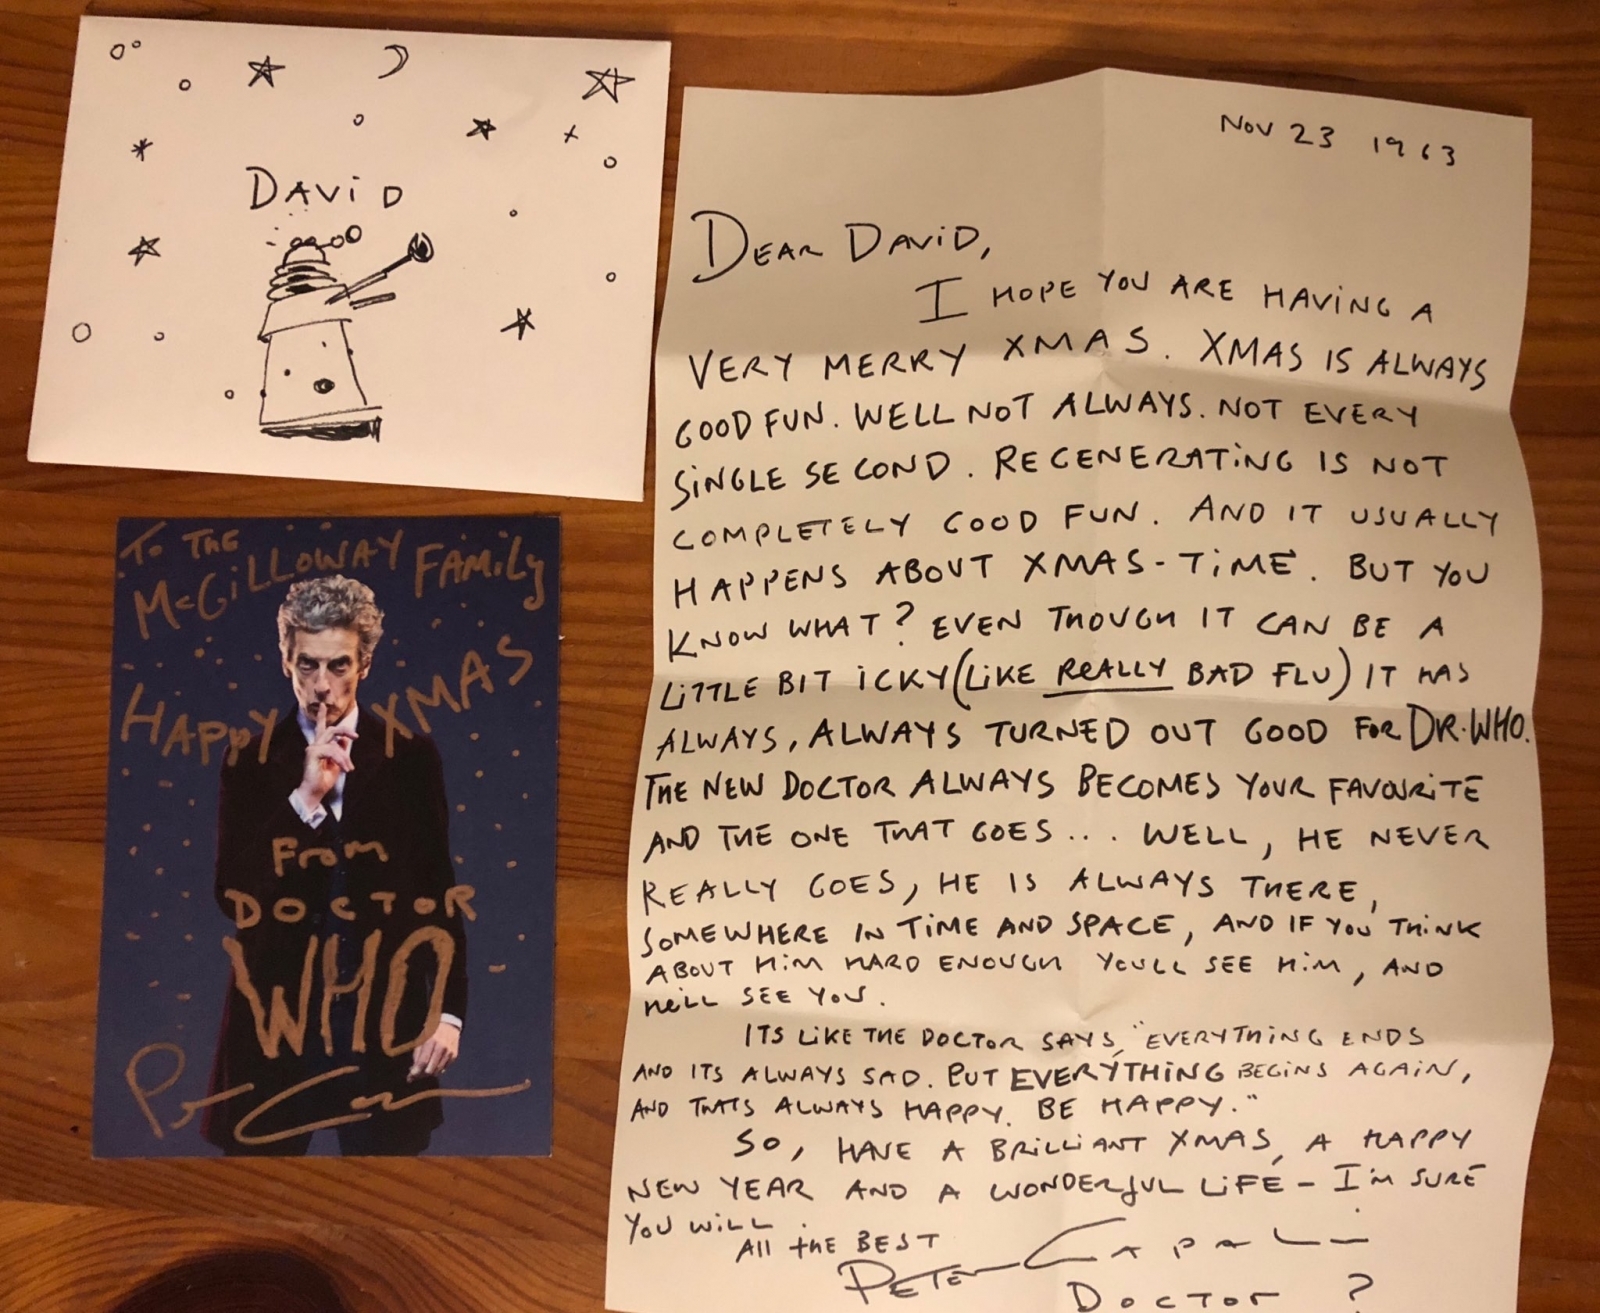 DAViD
To THE
McGiLLOWAY FAMiLy
HAPPY XMAS
From
DOCTOR
WHO
Nov 23 1963
DEAR DAViD,
I HOPE YOU ARE HAViNG A
VERY MERRY XMAS. XMAS IS ALWAYS
GOOD FUN. WELL NOT ALWAYS. NOT EVERY
SiNGLE SECOND. REGENERATiNG IS NOT
COMPLETELY GOOD FUN. AND IT USUALLY
HAPPENS ABOUT XMAS-TiME. BUT YOU
KNOW WHAT? EVEN THOUGH IT CAN BE A
LiTTLE BIT iCKY (LiKE REALLY BAD FLU) IT HAS
ALWAYS, ALWAYS TURNED OUT GOOD FOR DR.WHO.
THE NEW DOCTOR ALWAYS BECOMES YOUR FAVOURiTE
AND THE ONE THAT GOES... WELL, HE NEVER
REALLY GOES, HE IS ALWAYS THERE,
SOMEWHERE IN TiME AND SPACE, AND IF YOU THiNK
ABOUT HiM HARD ENOUGH YOULL SEE HiM, AND
HEiLL SEE YOU.
ITS LiKE THE DOCTOR SAYS, "EVERYTHiNG ENDS
AND ITS ALWAYS SAD. BUT EVERYTHiNG BEGiNS AGAiN,
AND THATS ALWAYS HAPPY. BE HAPPY."
SO, HAVE A BRiLLiANT XMAS, A HAPPY
NEW YEAR AND A WONDERfUL LiFE - I'M SURE
YOU WiLL.
All the BEST
PETER CAPALDI
DOCTOR ?